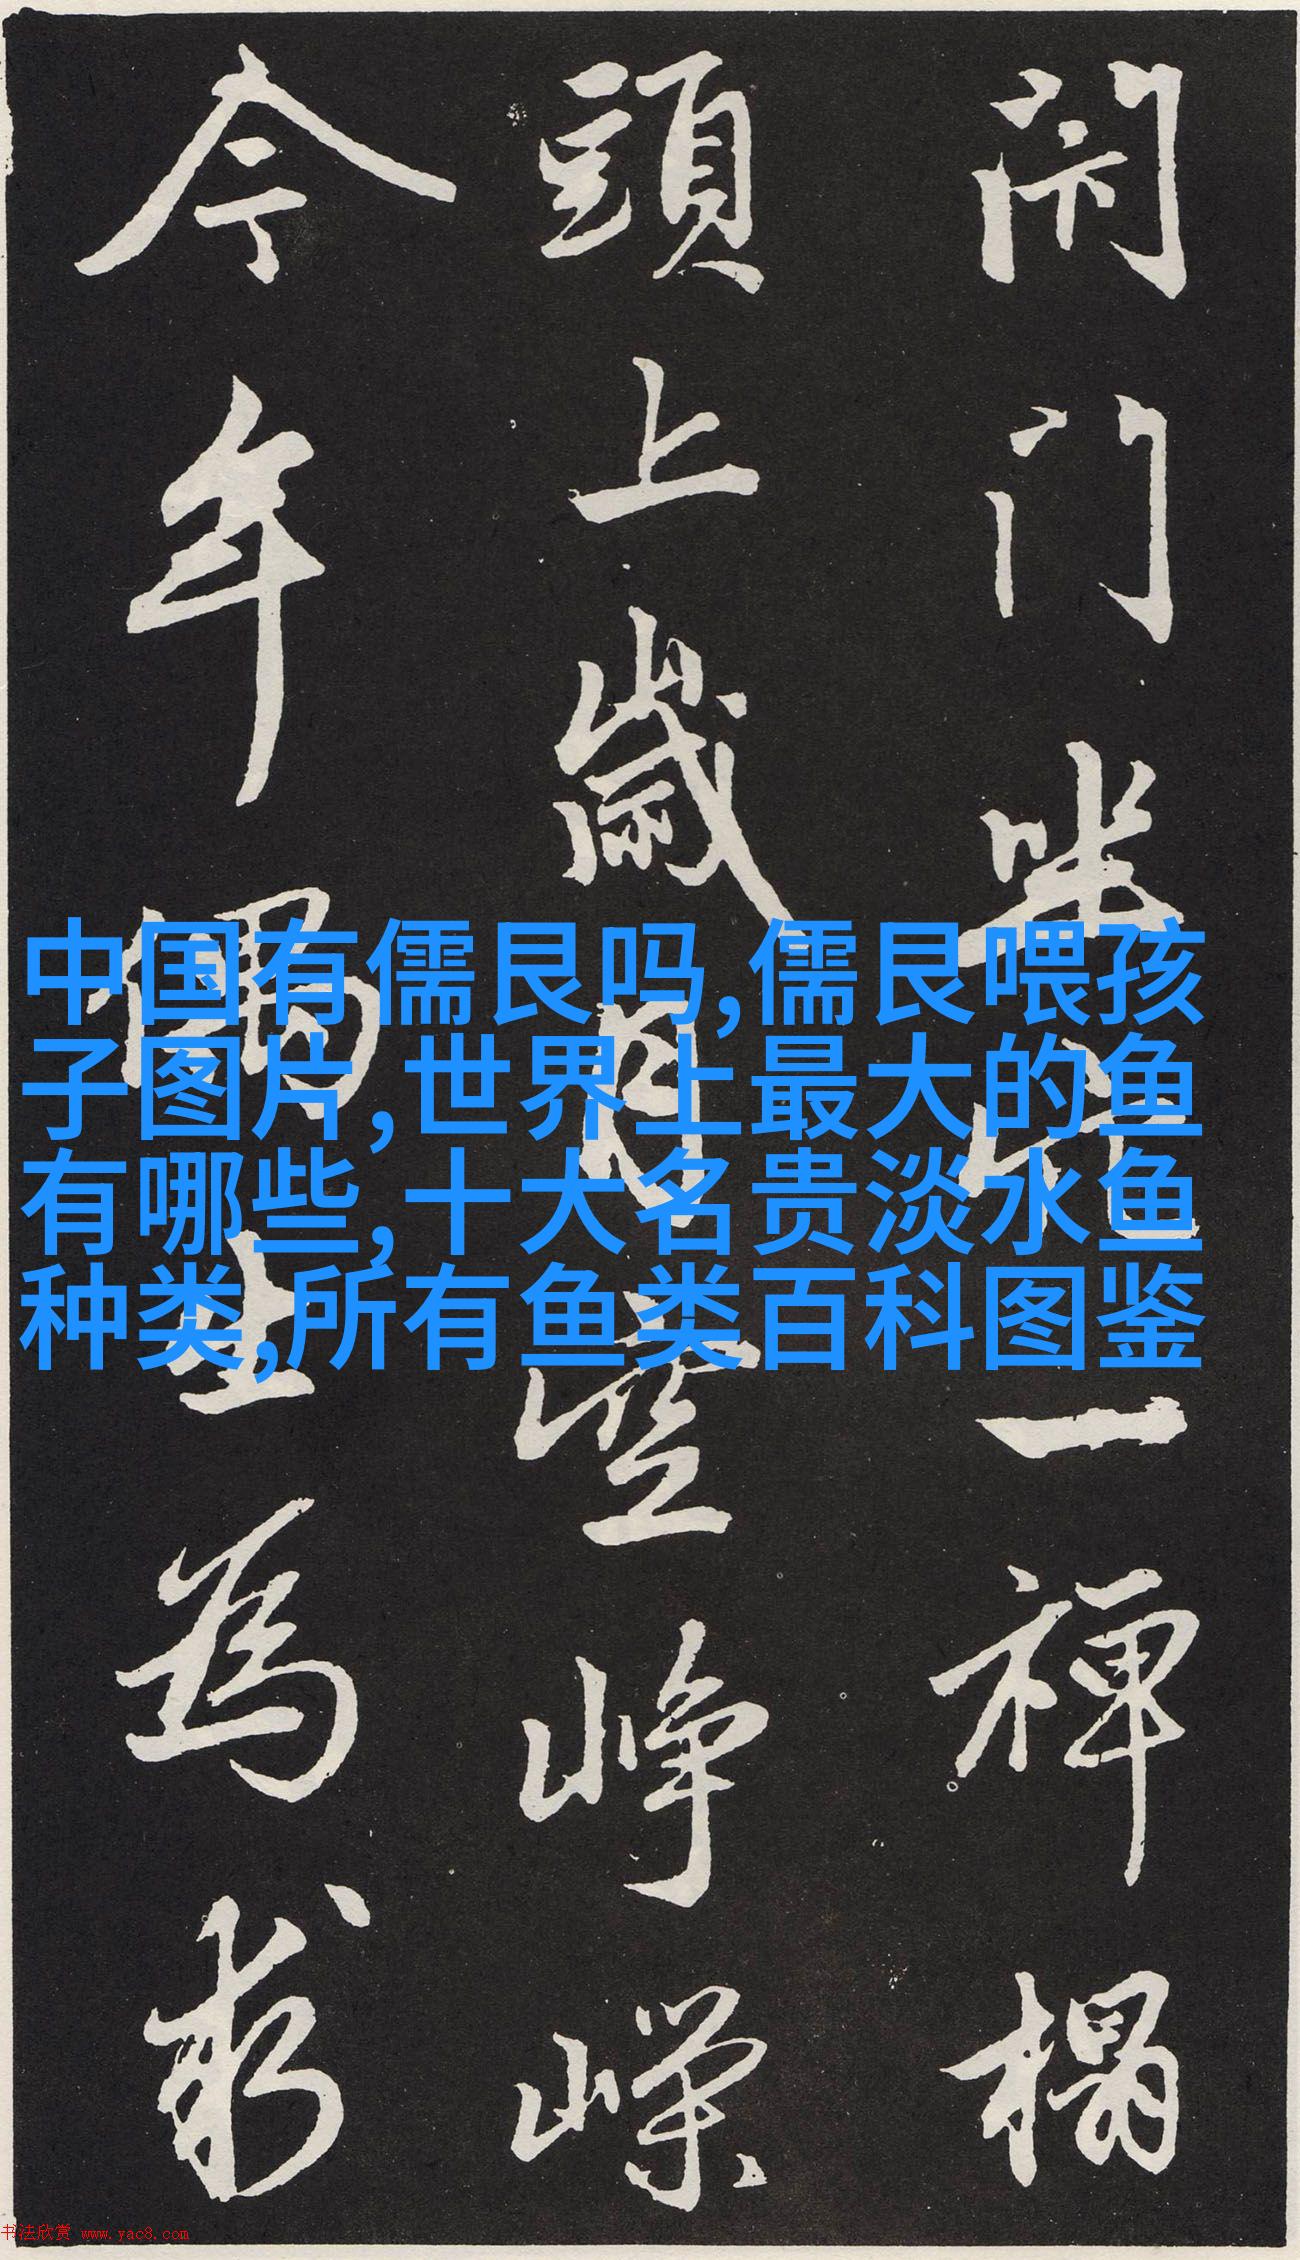 閉门坐穴一禅榻
頭上歲月空崢嶸
今年偶出為求
中国有儒艮吗,儒艮喂孩
子图片,世界上最大的鱼
有哪些,十大名贵淡水鱼
种类,所有鱼类百科图鉴
书法欣赏 www.yac8.com